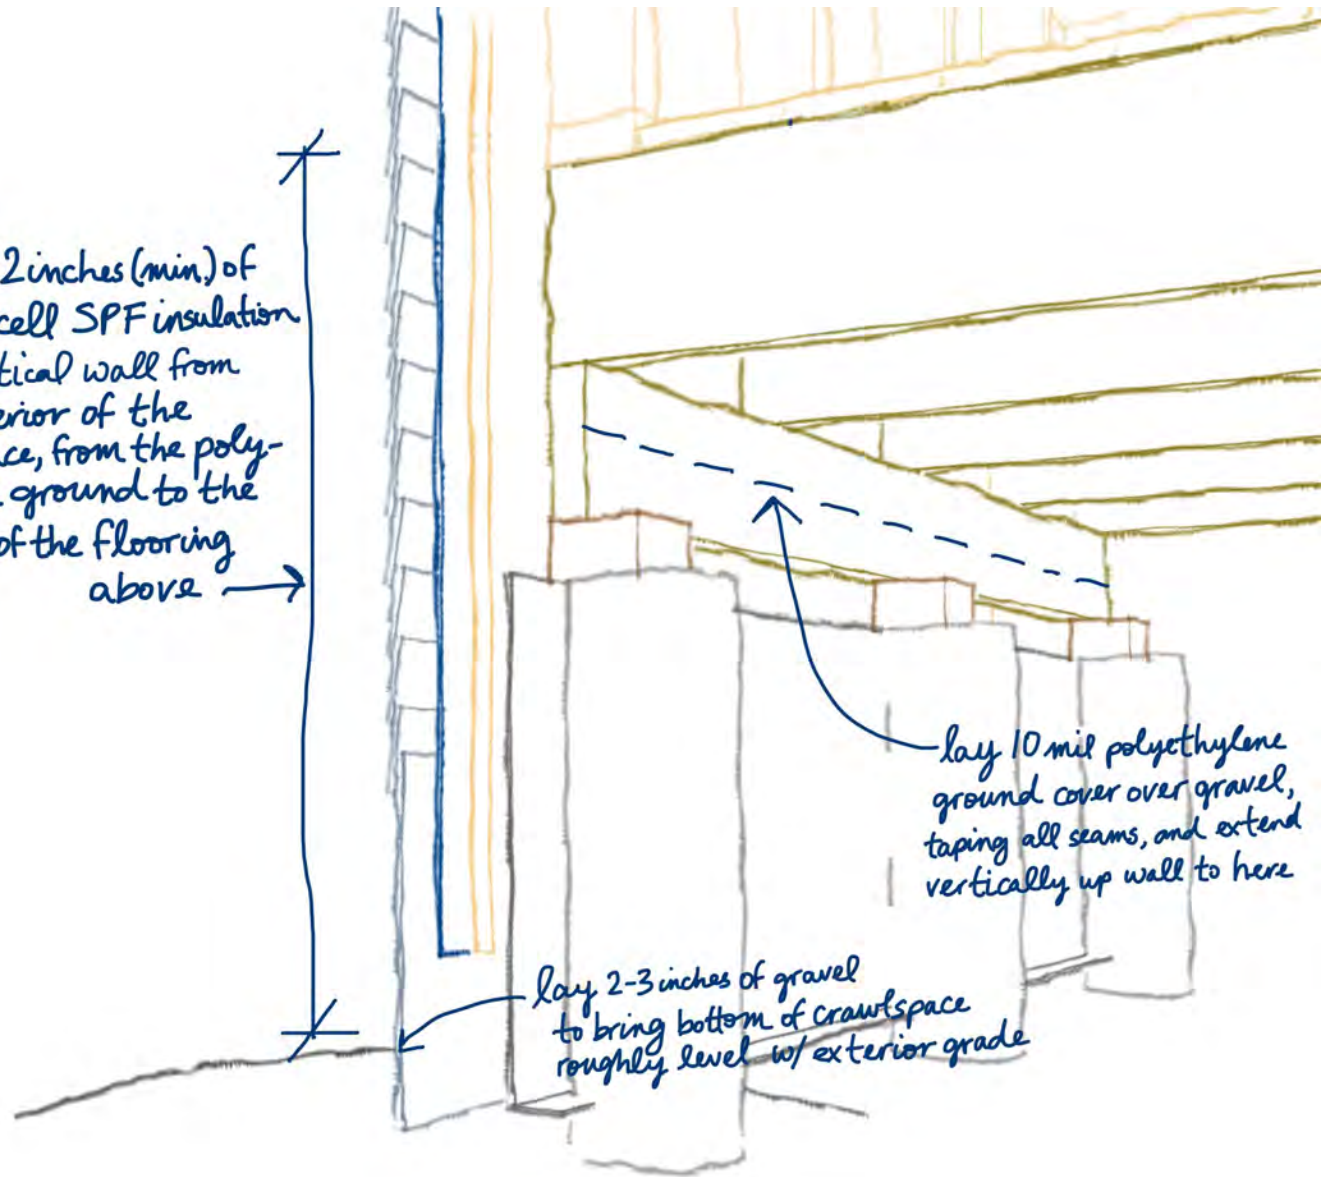 2 inches (min.) of
cell SPF insulation
tical wall from
erior of the
ce, from the poly-
ground to the
of the flooring
above
lay 10 mil polyethylene
ground cover over gravel,
taping all seams, and extend
vertically up wall to here
lay 2-3 inches of gravel
to bring bottom of crawlspace
roughly level w/ exterior grade